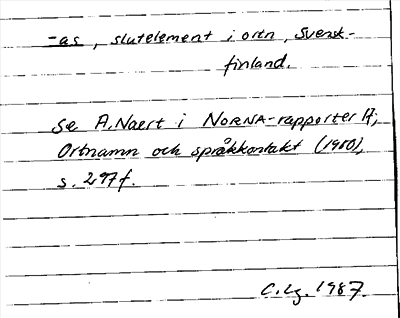 -as, slutelement i ortn, Svensk-
finland.
se A. Naert i NORNA-rapporter 17,
Ortnamn och språkkontakt (1980),
s. 297f.
C. Lg. 1987.